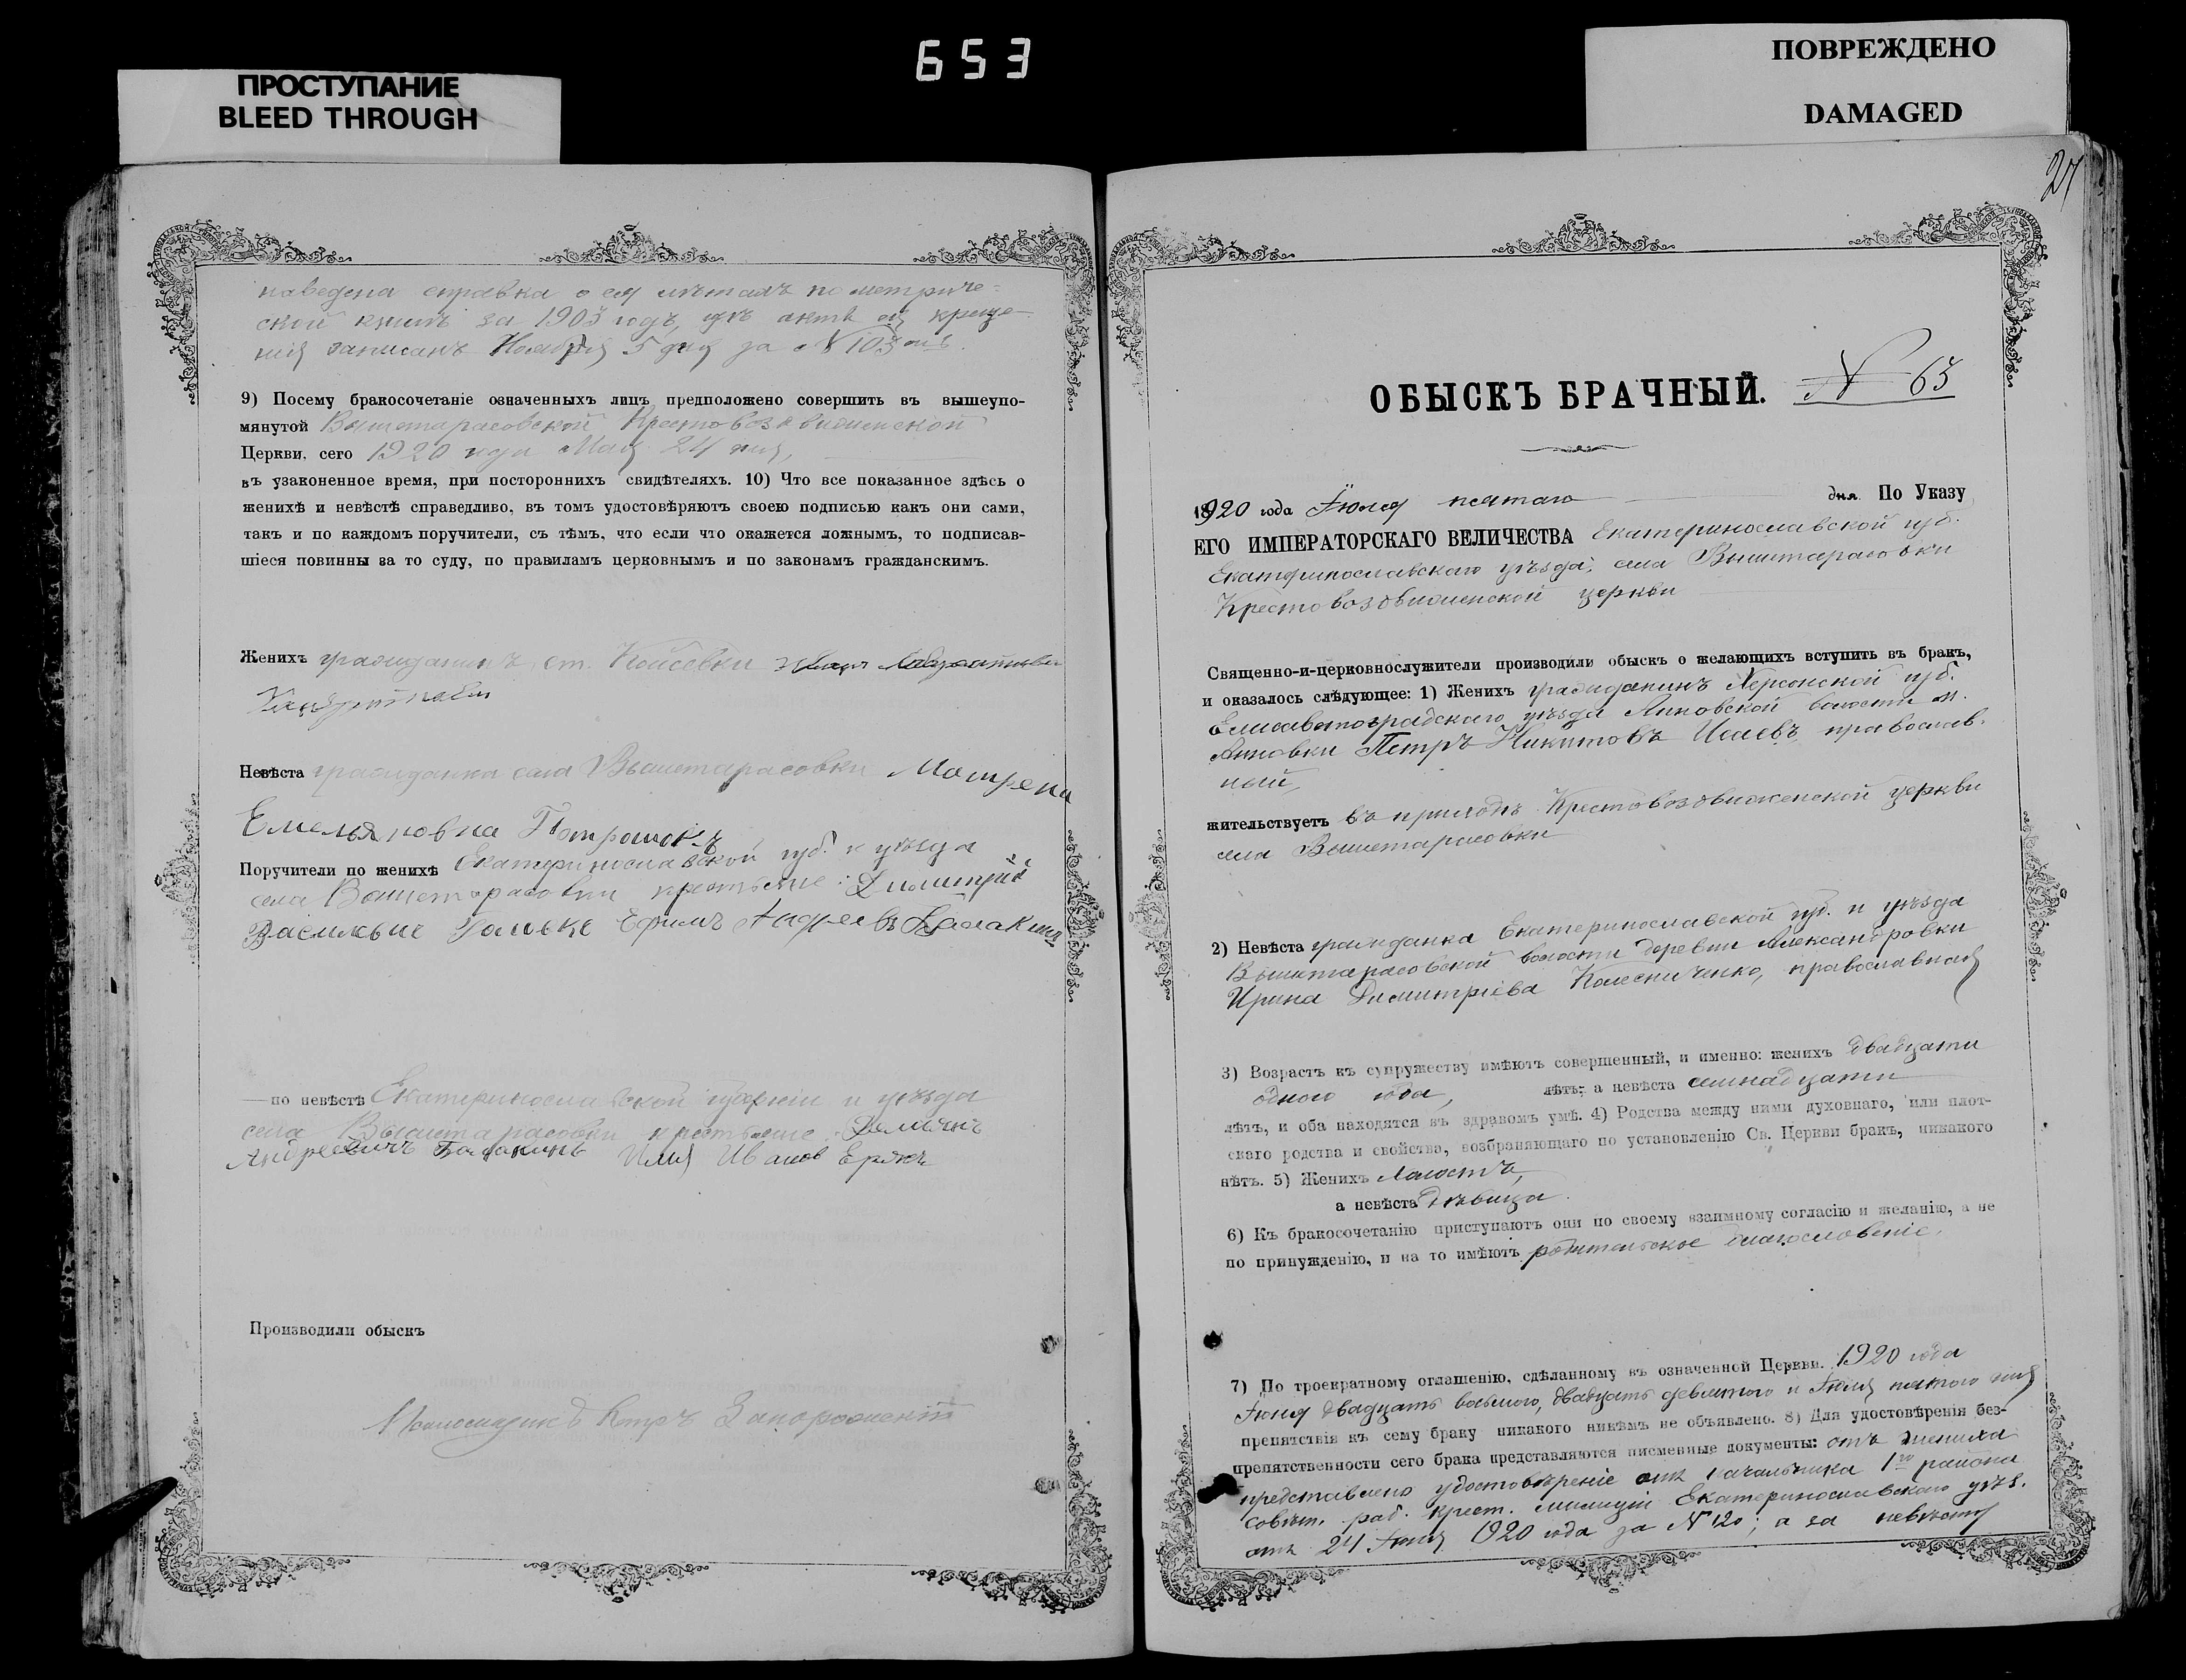 653
ПРОСТУПАНИЕ
BLEED THROUGH
ПОВРЕЖДЕНО
DAMAGED
наведена справка о ея лѣтахъ по метриче-
ской книгѣ за 1903 годъ, гдѣ актъ ея креще-
нія записанъ Ноября 5 дня за №103
9) Посему бракосочетаніе означенныхъ лицъ предположено совершить въ вышеупо-
мянутой Вышетарасовской Крестовоздвиженской
Церкви, сего 1920 года Мая 24 дня,
въ узаконенное время, при постороннихъ свидѣтеляхъ. 10) Что все показанное здѣсь о
женихѣ и невѣстѣ справедливо, въ томъ удостовѣряютъ своею подписью какъ они сами,
такъ и по каждомъ поручители, съ тѣмъ, что если что окажется ложнымъ, то подписав-
шіеся повинны за то суду, по правиламъ церковнымъ и по законамъ гражданскимъ.
Женихъ гражданинъ ст.
Невѣста гражданка села Вышетарасовки Матрена
Емельяновна
Поручители по женихѣ Екатеринославской губ. и уѣзда
села Вышетарасовки крестьяне: Димитрій
Ефимъ Андреевъ
—по невѣстѣ Екатеринославской губерніи и уѣзда
села Вышетарасовки крестьяне
Андреевичъ Илия Иванов
Производили обыскъ
27
ОБЫСКЪ БРАЧНЫЙ. № 63
1920 года Іюля пятаго дня. По Указу
ЕГО ИМПЕРАТОРСКАГО ВЕЛИЧЕСТВА Екатеринославской губ.
Екатеринославскаго уѣзда, села Вышетарасовки
Крестовоздвиженской церкви
Священно-и-церковнослужители производили обыскъ о желающихъ вступить въ бракъ,
и оказалось слѣдующее: 1) Женихъ гражданинъ Херсонской губ.
Елисаветоградскаго уѣзда Анновской волости м.
Анновки Петръ Никитовъ Исаевъ, православ-
ный,
жительствуетъ въ приходѣ Крестовоздвиженской церкви
села Вышетарасовки
2) Невѣста гражданка Екатеринославской губ. и уѣзда
Вышетарасовской волости деревни Александровки
Ирина Димитріева Колесниченко, православная
3) Возрастъ къ супружеству имѣютъ совершенный, и именно: женихъ двадцати
одного года, лѣтъ; а невѣста семнадцати
лѣтъ, и оба находятся въ здравомъ умѣ. 4) Родства между ними духовнаго, или плот-
скаго родства и свойства, возбраняющаго по установленію Св. Церкви бракъ, никакого
нѣтъ. 5) Женихъ холостъ,
а невѣста дѣвица.
6) Къ бракосочетанію приступаютъ они по своему взаимному согласію и желанію, а не
по принужденію, и на то имѣютъ родительское благословеніе.
7) По троекратному оглашенію, сдѣланному въ означенной Церкви. 1920 года
Іюня двадцать восьмого, двадцать девятого и Іюля пятого дня
препятствія къ сему браку никакого никѣмъ не объявлено. 8) Для удостовѣренія без-
препятственности сего брака представляются писменные документы: отъ жениха
представлено удостовѣреніе отъ начальника 1го района
совѣт. раб. крест. милиціи Екатеринославскаго уѣз.
отъ 24 1920 года за № 120; а за невѣсту